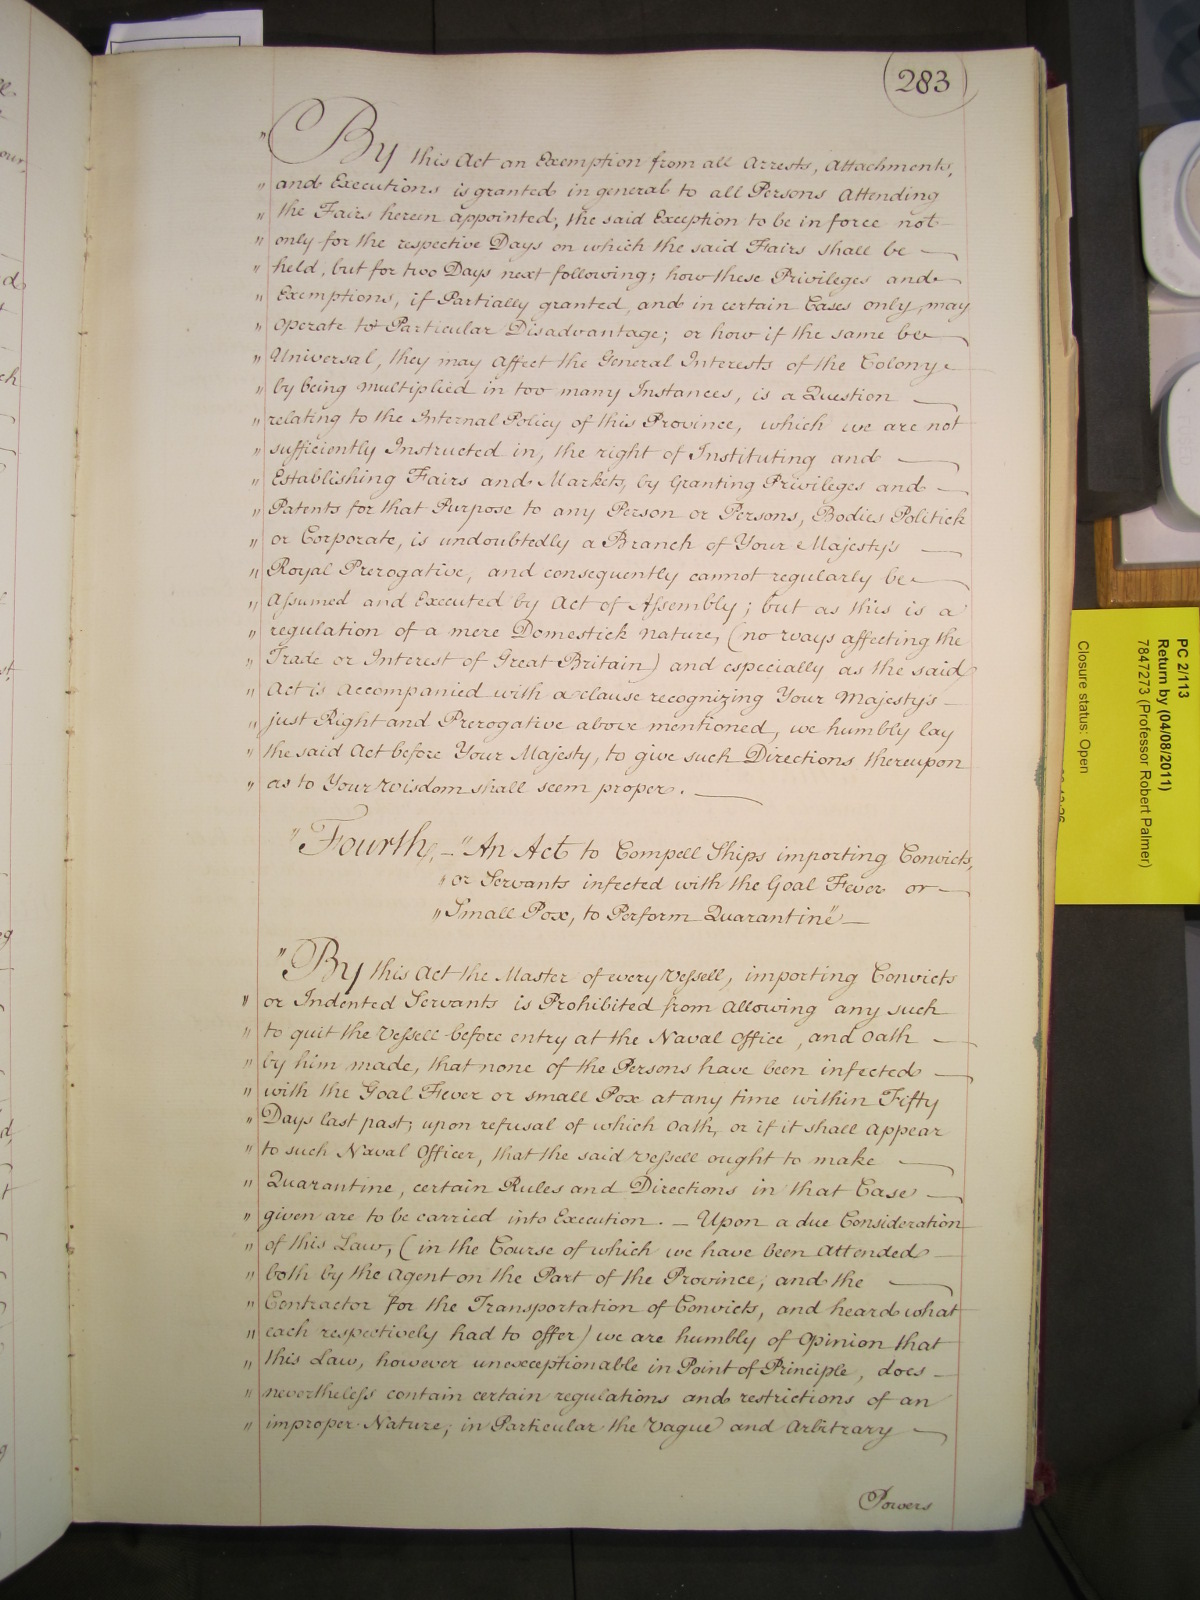 283
" By this Act an Exemption from all Arrests, Attachments,
" and Executions is granted in general to all Persons Attending
" the Fairs herein appointed, the said Exception to be in force not
" only for the respective Days on which the said Fairs shall be
" held, but for two Days next following; how these Privileges and
" Exemptions, if Partially granted, and in certain Cases only, may
" operate to Particular Disadvantage; or how if the same be
" Universal, they may affect the General Interests of the Colony
" by being multiplied in too many Instances, is a Question
" relating to the Internal Policy of this Province, which we are not
" sufficiently Instructed in, the right of Instituting and
" Establishing Fairs and Markets, by Granting Privileges and
" Patents for that Purpose to any Person or Persons, Bodies Politick
" or Corporate, is undoubtedly a Branch of Your Majesty's
" Royal Prerogative, and consequently cannot regularly be
" Assumed and Executed by Act of Assembly; but as this is a
" regulation of a mere Domestick nature, (no ways affecting the
" Trade or Interest of Great Britain) and especially as the said
" Act is Accompanied with a clause recognizing Your Majesty's
" just Right and Prerogative above mentioned, we humbly lay
" the said Act before Your Majesty, to give such Directions thereupon
" as to Your Wisdom shall seem proper.
" Fourth, — "An Act to Compell Ships importing Convicts,
" or Servants infected with the Goal Fever or
" Small Pox, to Perform Quarantine"
" By this Act the Master of every Vessell, importing Convicts
" or Indented Servants is Prohibited from allowing any such
" to quit the Vessell before entry at the Naval Office, and Oath
" by him made, that none of the Persons have been infected
" with the Goal Fever or small Pox at any time within Fifty
" Days last past; upon refusal of which Oath, or if it shall appear
" to such Naval Officer, that the said Vessell ought to make
" Quarantine, certain Rules and Directions in that Case
" given are to be carried into Execution. — Upon a due Consideration
" of this Law, (in the Course of which we have been Attended
" both by the Agent on the Part of the Province, and the
" Contractor for the Transportation of Convicts, and heard what
" each respectively had to offer) we are humbly of Opinion that
" this Law, however unexceptionable in Point of Principle, does
" nevertheless contain certain regulations and restrictions of an
" improper Nature; in Particular the Vague and Arbitrary
Powers
PC 2/113
Return by (04/08/2011)
7847273 (Professor Robert Palmer)
Closure status: Open